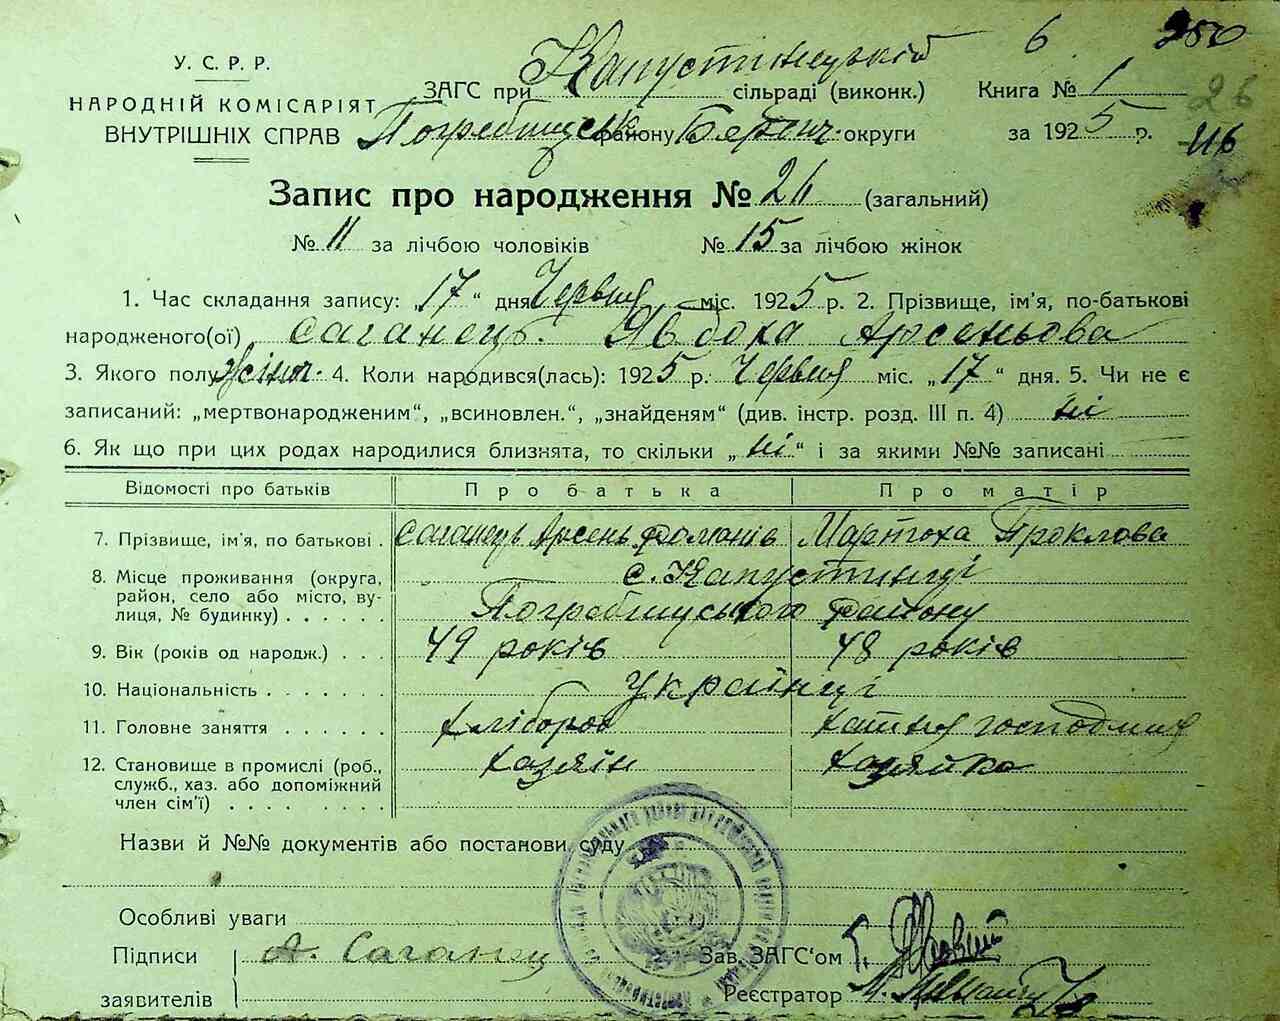 У. С. Р. Р.
НАРОДНІЙ КОМІСАРІЯТ
ВНУТРІШНІХ СПРАВ
6 250
ЗАГС при Капустинецькій сільраді (виконк.) Книга № 1
26
Погребищенськ району Бердич. округи за 1925 р.
116
Запис про народження № 26 (загальний)
№ 11 за лічбою чоловіків № 15 за лічбою жінок
1. Час складання запису: „17“ дня Червня міс. 1925 р. 2. Прізвище, ім'я, по-батькові
народженого(ої) Саганець Явдоха Арсеньова
3. Якого полу жіноч. 4. Коли народився(лась): 1925 р. Червня міс. „17“ дня. 5. Чи не є
записаний: „мертвонародженим“, „всиновлен.“, „знайденям“ (див. інстр. розд. III п. 4) ні
6. Як що при цих родах народилися близнята, то скільки „ні“ і за якими №№ записані
Відомості про батьків Про батька Про матір
7. Прізвище, ім'я, по батькові . Саганець Арсень Романів Мартоха Проклова
8. Місце проживання (округа, район, село або місто, вулиця, № будинку) . . . . . . с. Капустинці
Погребищського району
9. Вік (років од народж.) . . . 49 років 48 років
10. Національність . . . . . . . Українці
11. Головне заняття . . . . . . хлібороб хатня господиня
12. Становище в промислі (роб., служб., хаз. або допоміжний член сім'ї) . . . . . . . . хазяїн хазяйка
Назви й №№ документів або постанови суду
Особливі уваги
Підписи А. Саганец Зав. ЗАГС'ом
заявителів Реєстратор